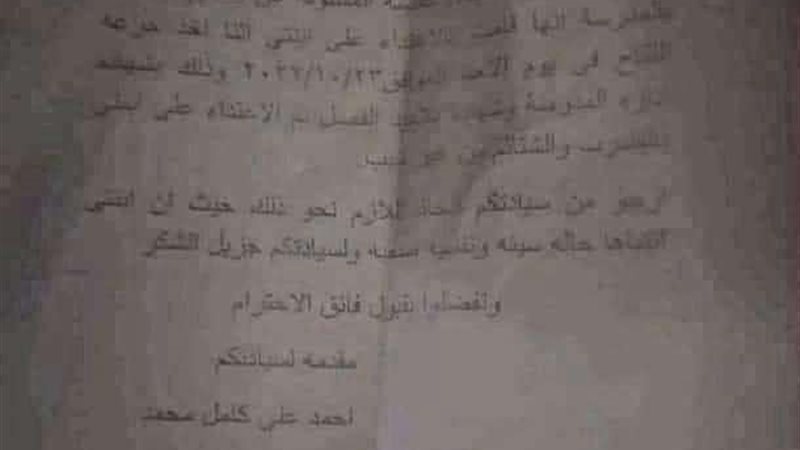 بالمدرسة انها قامت بالاعتداء على ابنتى اثناء اخذ جرعه
اللقاح فى يوم الاحد الموافق ٢٠٢٢/١٠/٢٣ وذلك بشهادة
المدرسة الفصل تم الاعتداء على ابنتى
بالضرب والشتائم سبب
ارجو من سيادتكم اتخاذ اللازم نحو ذلك حيث ان ابنتى
حاله سيئه ونفسيه ولسيادتكم جزيل الشكر
وتفضلوا بقبول فائق الاحترام
مقدمه لسيادتكم
احمد على كامل محمد